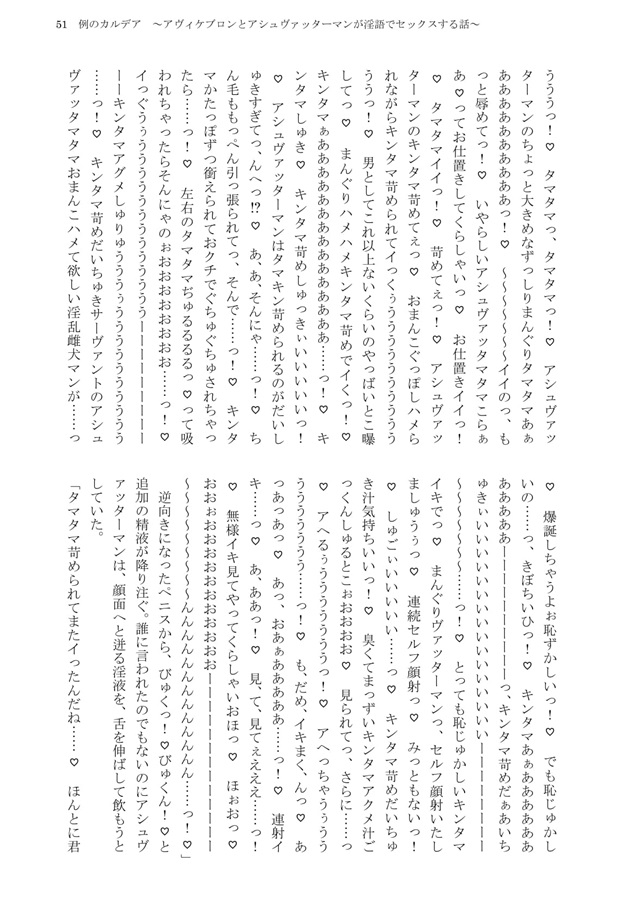 51　例のカルデア　～アヴィケブロンとアシュヴァッターマンが淫語でセックスする話～
うううっ！♡　タマタマっ、タマタマっ！♡　アシュヴァッ
ターマンのちょっと大きめなずっしりまんぐりタマタマあぁ
ああああああああああっ！♡　～～～～～～イイのっ、も
っと辱めてっ！♡　いやらしいアシュヴァッタマタマこらぁ
あ♡ってお仕置きしてくらしゃいっ♡　お仕置きイイっ！
♡　タマタマイイっ！♡　苛めてぇっ！♡　アシュヴァッ
ターマンのキンタマ苛めてぇっ♡　おまんこぐっぽしハメら
れながらキンタマ苛められてイっくぅうううううううううう
ううっ！♡　男としてこれ以上ないくらいのやっばいとこ曝
してっ♡　まんぐりハメハメキンタマ苛めでイくっ！♡
キンタマぁあああああああああああああああ……っ！♡　キ
ンタマしゅき♡　キンタマ苛めしゅっきぃいいいいいっ！
♡　アシュヴァッターマンはタマキン苛められるのがだいし
ゅきすぎてっ、んへっ!?♡　あ、あ、そんにゃ……っ！♡　ち
ん毛ももっぺん引っ張られてっ、そんで……っ！♡　キンタ
マかたっぽずつ銜えられておクチでぐちゅぐちゅされちゃっ
たら……っ！♡　左右のタマタマぢゅるるるるっ♡って吸
われちゃったらそんにゃのぉおおおおおおおお……っ！♡
イっぐうぅうううううううううううううう――――――――
――キンタマアグメしゅりゅうううぅうううううううううう
……っ！♡　キンタマ苛めだいちゅきサーヴァントのアシュ
ヴァッタマタマおまんこハメて欲しい淫乱雌犬マンが……っ
♡　爆誕しちゃうよぉ恥ずかしいっ！♡　でも恥じゅかし
いの……っ、きぼちいひっ！♡　キンタマあぁああああああ
ああああああ――――――――――っ、キンタマ苛めだぁあいち
ゅきぃいいいいいいいいいいいいいいい――――――――
～～～～～～～……っ！♡　とっても恥じゅかしいキンタマ
イキでっ♡　まんぐりヴァッターマンっ、セルフ顔射いたし
ましゅうぅっ♡　連続セルフ顔射っ♡　みっともないっ！
♡　しゅごぃいいいいいい……っ♡　キンタマ苛めだいちゅ
き汁気持ちいいっ！♡　臭くてまっずいキンタマアクメ汁ご
っくんしゅるとこぉおおおお♡　見られてっ、さらに……っ
♡　アへるぅううううううううっ！♡　アヘっちゃうぅうう
ううううううう……っ！♡　も、だめ、イキまく、んっ♡　あ
つあっあっ♡　あっ、おあぁああああああ……っ！♡　連射イ
キ……っ♡　あ、ああっ！♡　見、て、見てぇえええ……っ！
♡　無様イキ見てやってくらしゃいおほっ♡　ほぉおっ♡
おおぉおおおおおおおおおおおおおお――――――――――――
～～～～～～～んんんんんんんんんんんん……っ！♡」
　逆向きになったペニスから、びゅくっ！♡びゅくん！♡と
追加の精液が降り注ぐ。誰に言われたのでもないのにアシュヴ
ァッターマンは、顔面へと迸る淫液を、舌を伸ばして飲もうと
していた。
「タマタマ苛められてまたイったんだね……♡　ほんとに君